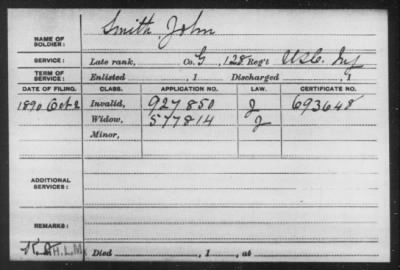 NAME OF SOLDIER: Smith, John
SERVICE: Late rank, Co. G, 128 Reg't U.S.C. Inf
TERM OF SERVICE: Enlisted , 1 Discharged , 1
DATE OF FILING. CLASS. APPLICATION NO. LAW. CERTIFICATE NO.
1890 Oct 2 Invalid, 927850 J 693648
Widow, 577814 J
Minor,
ADDITIONAL SERVICES:
REMARKS:
H.L.M. Died , 1 , at